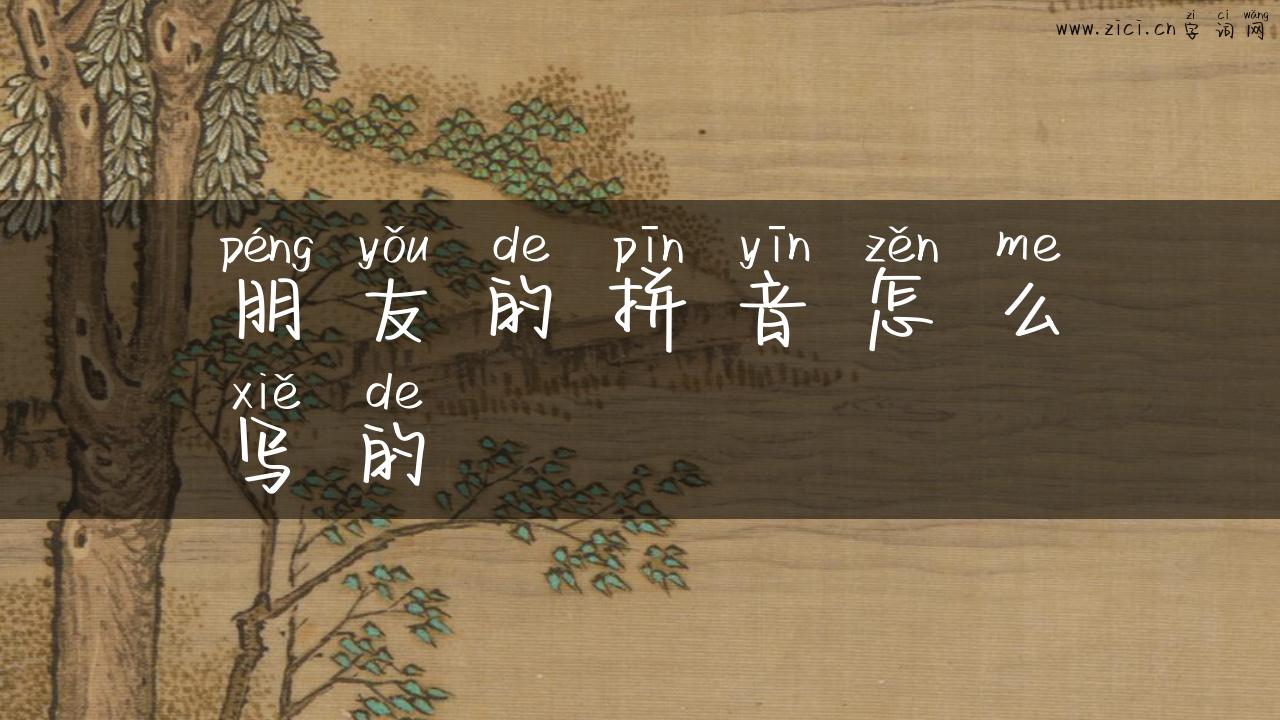 zì cí wǎng
www.zici.cn 字 词 网
péng yǒu de pīn yīn zěn me
朋 友 的 拼 音 怎 么
xiě de
写 的